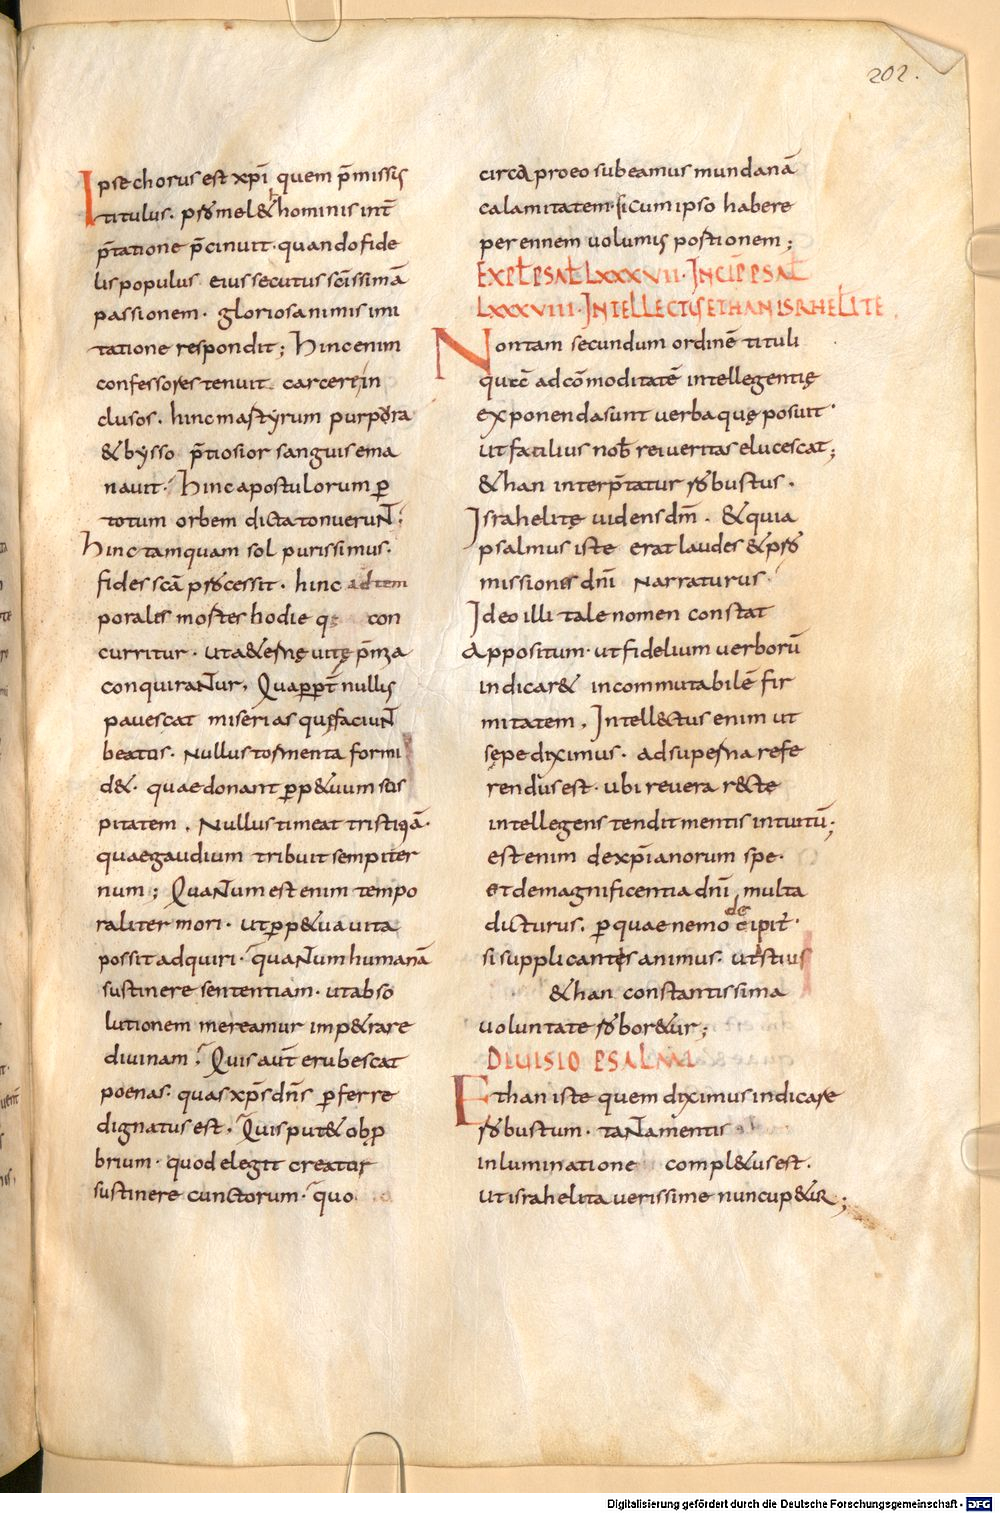 202.
Ipse chorus est xp̄i quem p̄missis
titulus. pro mel& hominis int̄
p̄tatione p̄cinuit. quando fide
lis populus eius secutus sc̄issimā
passionem. gloriosa nimis imi
tatione respondit; hinc enim
confessores tenuit carcere in
clusos. hinc martyrum purpora
& bysso p̄tiosior sanguis ema
nauit. hinc apostulorum p̄
totum orbem dicta tonuerunt;
hinc tamquam sol purissimus.
fides sc̄a processit. hinc ad tem
poralis mortes hodie con
curritur. uta&ernę uitę p̄mia
conquirantur. Quapropt̄ nullis
pauescat miserias quę faciunt
beatus. Nullus tormenta formi
d&. quae donant p̄p&uum sos
pitatem. Nullus timeat tristiā.
quae gaudium tribuit sempiter
num; Quantum est enim tempo
raliter mori. ut p̄p&ua uita
possit adquiri. quantum humanā
sustinere sententiam. ut abso
lutionem mereamur imp&rare
diuinam. Quis aut̄ erubescat
poenas. quas xp̄s dn̄s p̄ferre
dignatus est. Quis put& obp̄
brium. quod elegit creator
sustinere cunctorum. quo
circa pro eo subeamus mundanā
calamitatem. si cum ipso habere
perennem uolumis portionem;
EXPL̄ PSAL̄ LXXXVII. INCIP̄ PSAL̄
LXXXVIII. INTELLECTUS ETHAN ISRHELITE
Non tam secundum ordinē tituli
quā ad cōmoditatē intellegentię
exponenda sunt uerba quę posuit.
ut facilius nob̄ rei ueritas elucescat;
&han interp̄tatur robustus.
Israhelitę uidens dm̄. & quia
psalmus iste erat laudes & pro
missiones dn̄i narraturus.
Ideo illi tale nomen constat
appositum. ut fidelium uerborū
indicar& incommutabilē fir
mitatem. Intellectus enim ut
sępe diximus. ad superna refe
rendus est. ubi reuera rectę
intellegens tendit mentis intuitū;
est enim de xp̄ianorum spe.
et de magnificentia dn̄i multa
dicturus. p̄ quae nemo decipit̄.
si supplicantes animus. ut istius
&han constantissima
uoluntate robor&ur;
DIUISIO PSALMI
Ethan iste quem diximus indicare
robustum. tanta mentis
inluminatione compl&us est.
ut israhelita uerissime nuncup&ur;
Digitalisierung gefördert durch die Deutsche Forschungsgemeinschaft - DFG